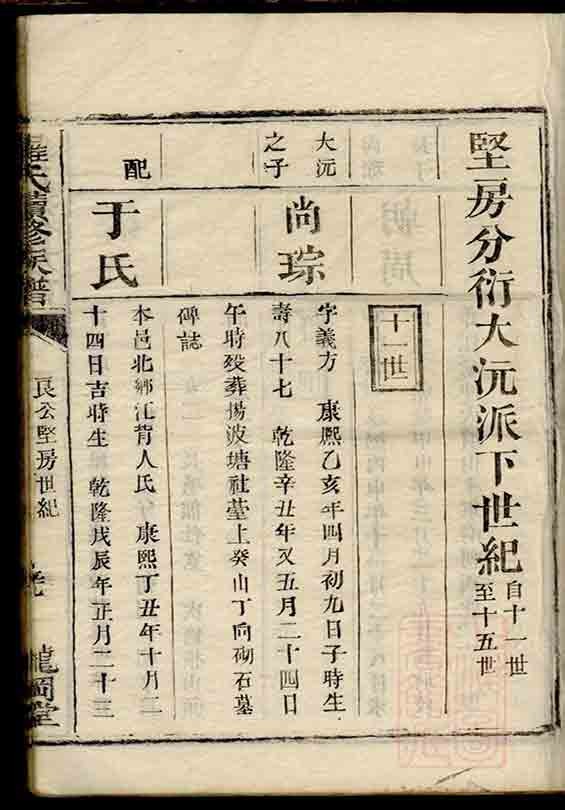 堅房分衍大沅派下世紀 自十一世至十五世
十一世
大沅之子
尚琮
字義方 康熙乙亥年四月初九日子時生
壽八十七 乾隆辛丑年又五月二十四日
午時歿葬揚波塘社臺上癸山丁向砌石墓
碑誌
配
于氏
本邑北鄉江背人氏 康熙丁丑年十月二
十四日吉時生 乾隆戊辰年正月二十三
氏續修族譜
良公堅房世紀
龍岡堂